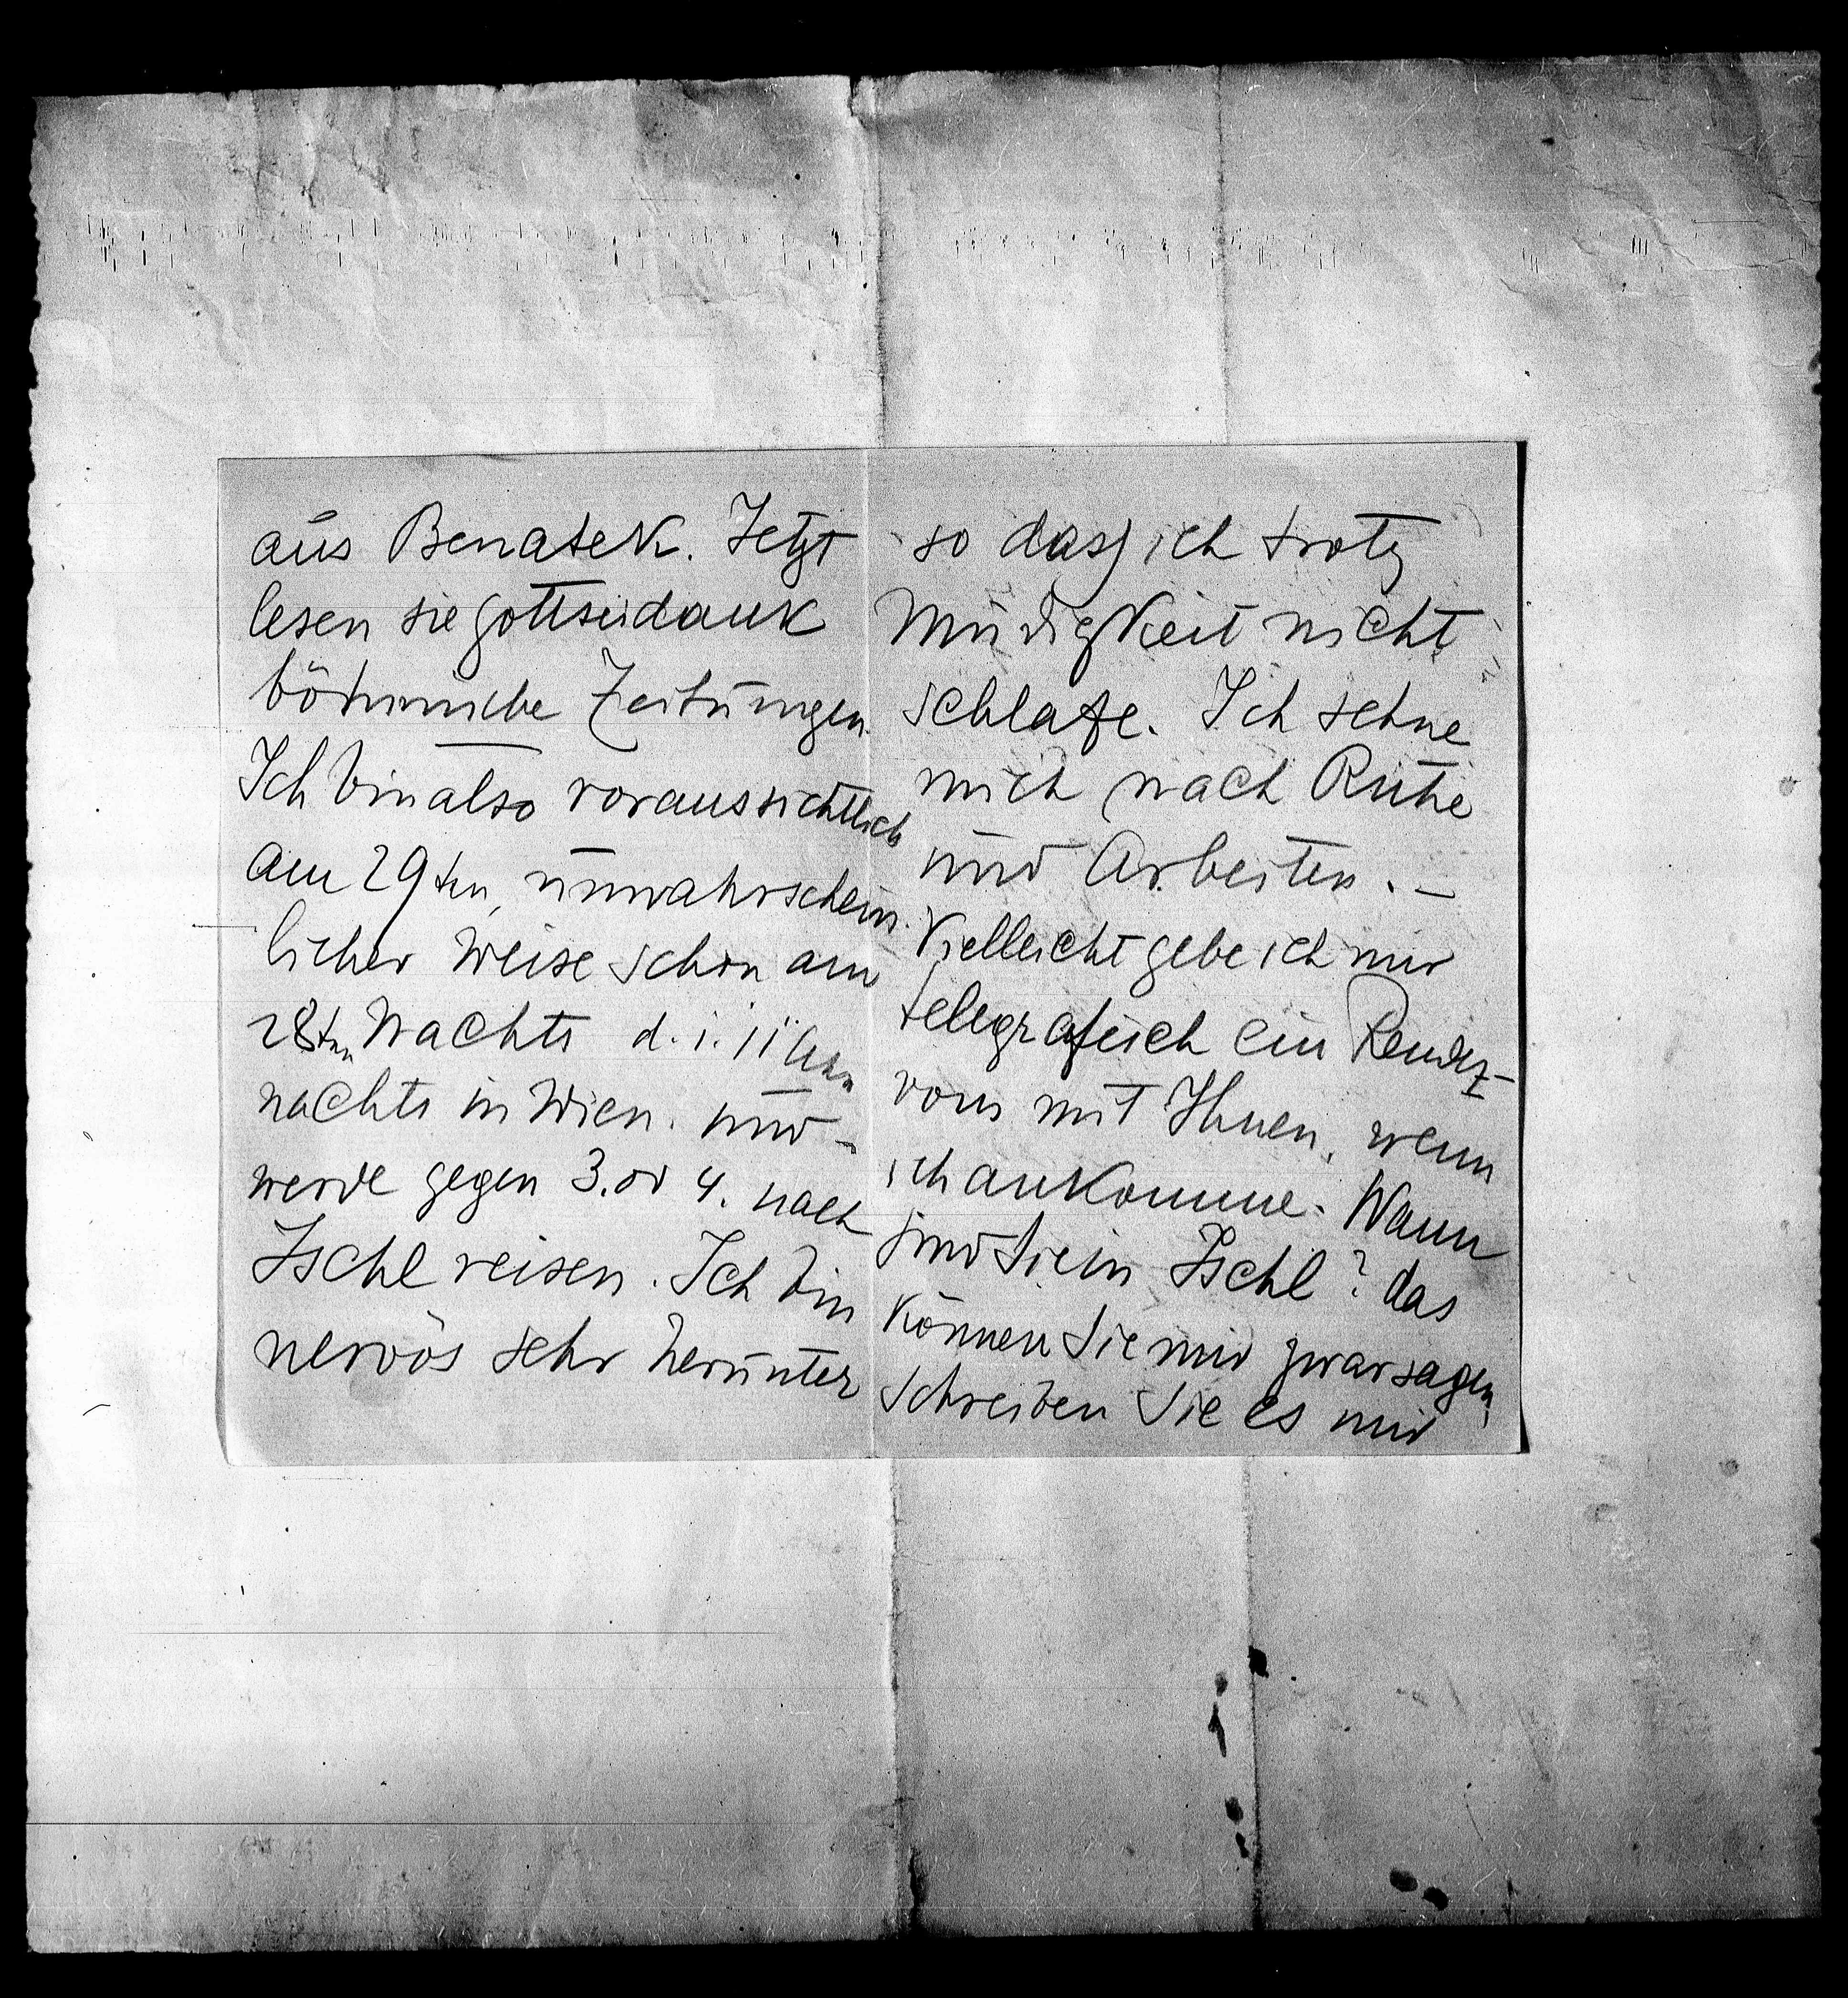 aus Benatek. Jetzt
lesen sie gottseidank
böhmische Zeitungen.
Ich bin also voraussichtlich
am 29ten, unwahrschein-
licher Weise schon am
28ten Nachts d. i. 11 Uhr
nachts in Wien. und
werde gegen 3. od 4. nach
Ischl reisen. Ich bin
nervös sehr herunter
so dass ich trotz
Müdigkeit nicht
schlafe. Ich sehne
mich nach Ruhe
und Arbeiten. –
Vielleicht gebe ich mir
telegrafisch ein Rendez-
vous mit Ihnen, wenn
ich ankomme. Wann
sind Sie in Ischl? das
können Sie mir zwar sagen,
schreiben Sie es mir